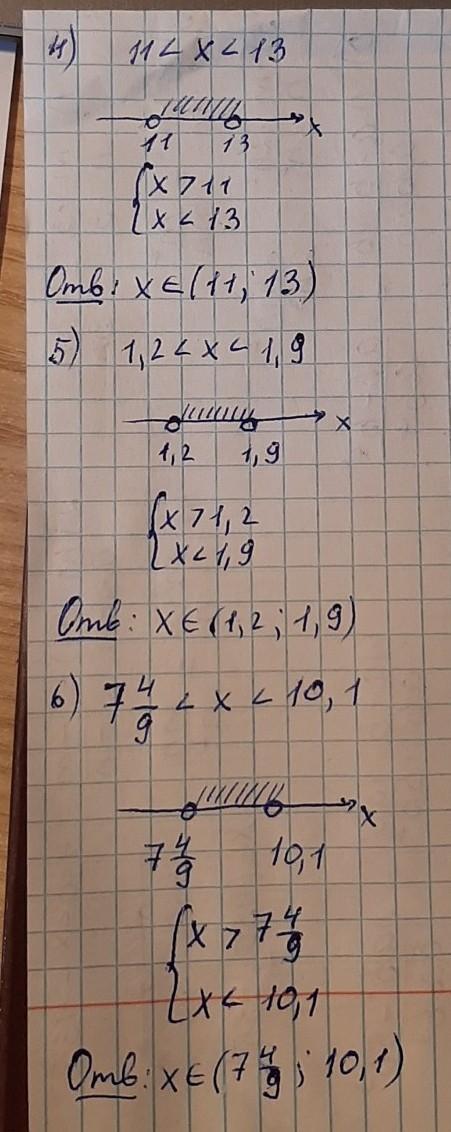 4) 11 < x < 13
x
11 13
{ x > 11
x < 13
Отв: x ∈ (11; 13)
5) 1,2 < x < 1,9
x
1,2 1,9
{ x > 1,2
x < 1,9
Отв: x ∈ (1,2; 1,9)
6) 7 4/9 < x < 10,1
x
7 4/9 10,1
{ x > 7 4/9
x < 10,1
Отв: x ∈ (7 4/9; 10,1)